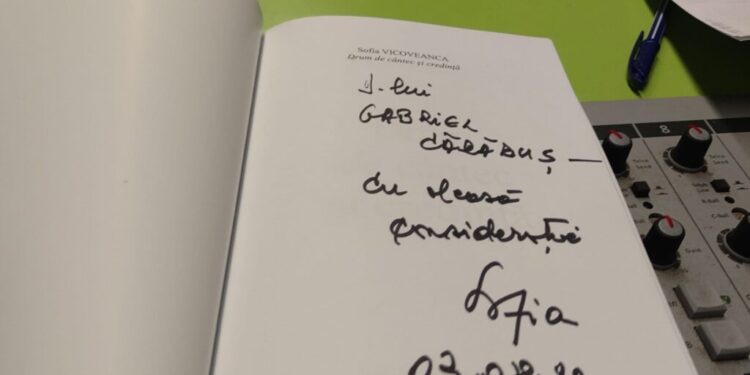 Sofia VICOVEANCA
Drum de cântec și credință
D-lui
GABRIEL
CĂRĂBUȘ —
cu aleasă
considerație
Sofia
8